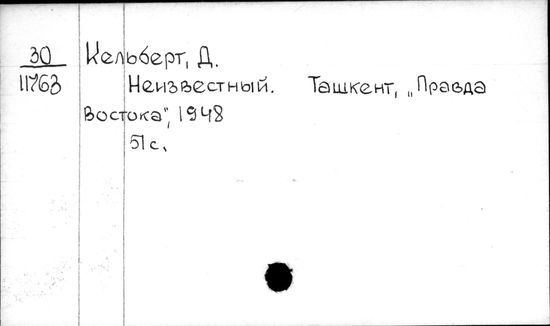 30 Кельберт, Д.
11763 Неизвестный. Ташкент, „Правда
Востока", 1948
51 с.